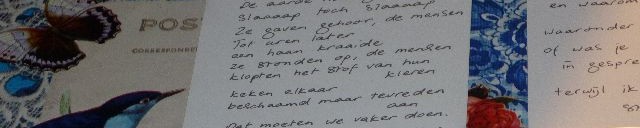 De aarde
Slaaaap toch Slaaaap
Ze gaven gehoor, de mensen
Tot uren later
een haan kraaide
ze stonden op, de mensen
klopten het stof van hun
kleren
keken elkaar
beschaamd maar tevreden
aan
Dat moeten we vaker doen.
POS
CORRESPONDEN
en waarom
waaronder
of was je
in gespre
terwijl ik